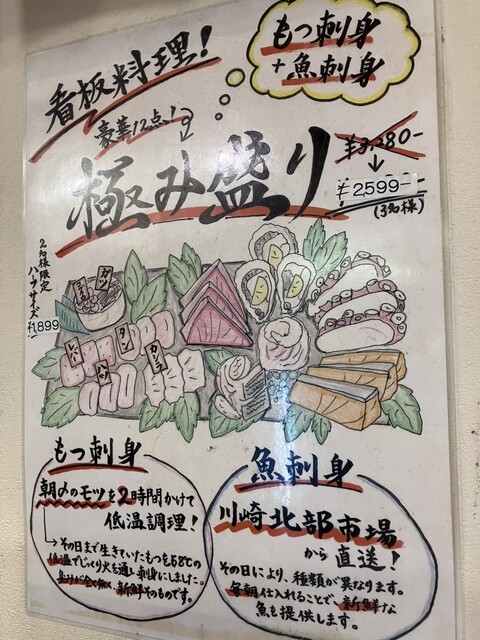 看板料理!
もつ刺身
+魚刺身
豪華12点!
極み盛り
¥3,280-
¥2,599-
(3名様)
2名様限定
ハーフサイズ
¥1,899
ガツ
コブクロ
タン
レバー
ハツ
カシラ
もつ刺身
朝〆のモツを2時間かけて
低温調理!
→その日まで生きていたもつを68℃の
低温でじっくり火を通し刺身にしました。
臭みが全く無く、新鮮そのものです。
魚刺身
川崎北部市場
から直送!
その日により、種類が異なります。
毎朝仕入れることで、新鮮な
魚を提供します。